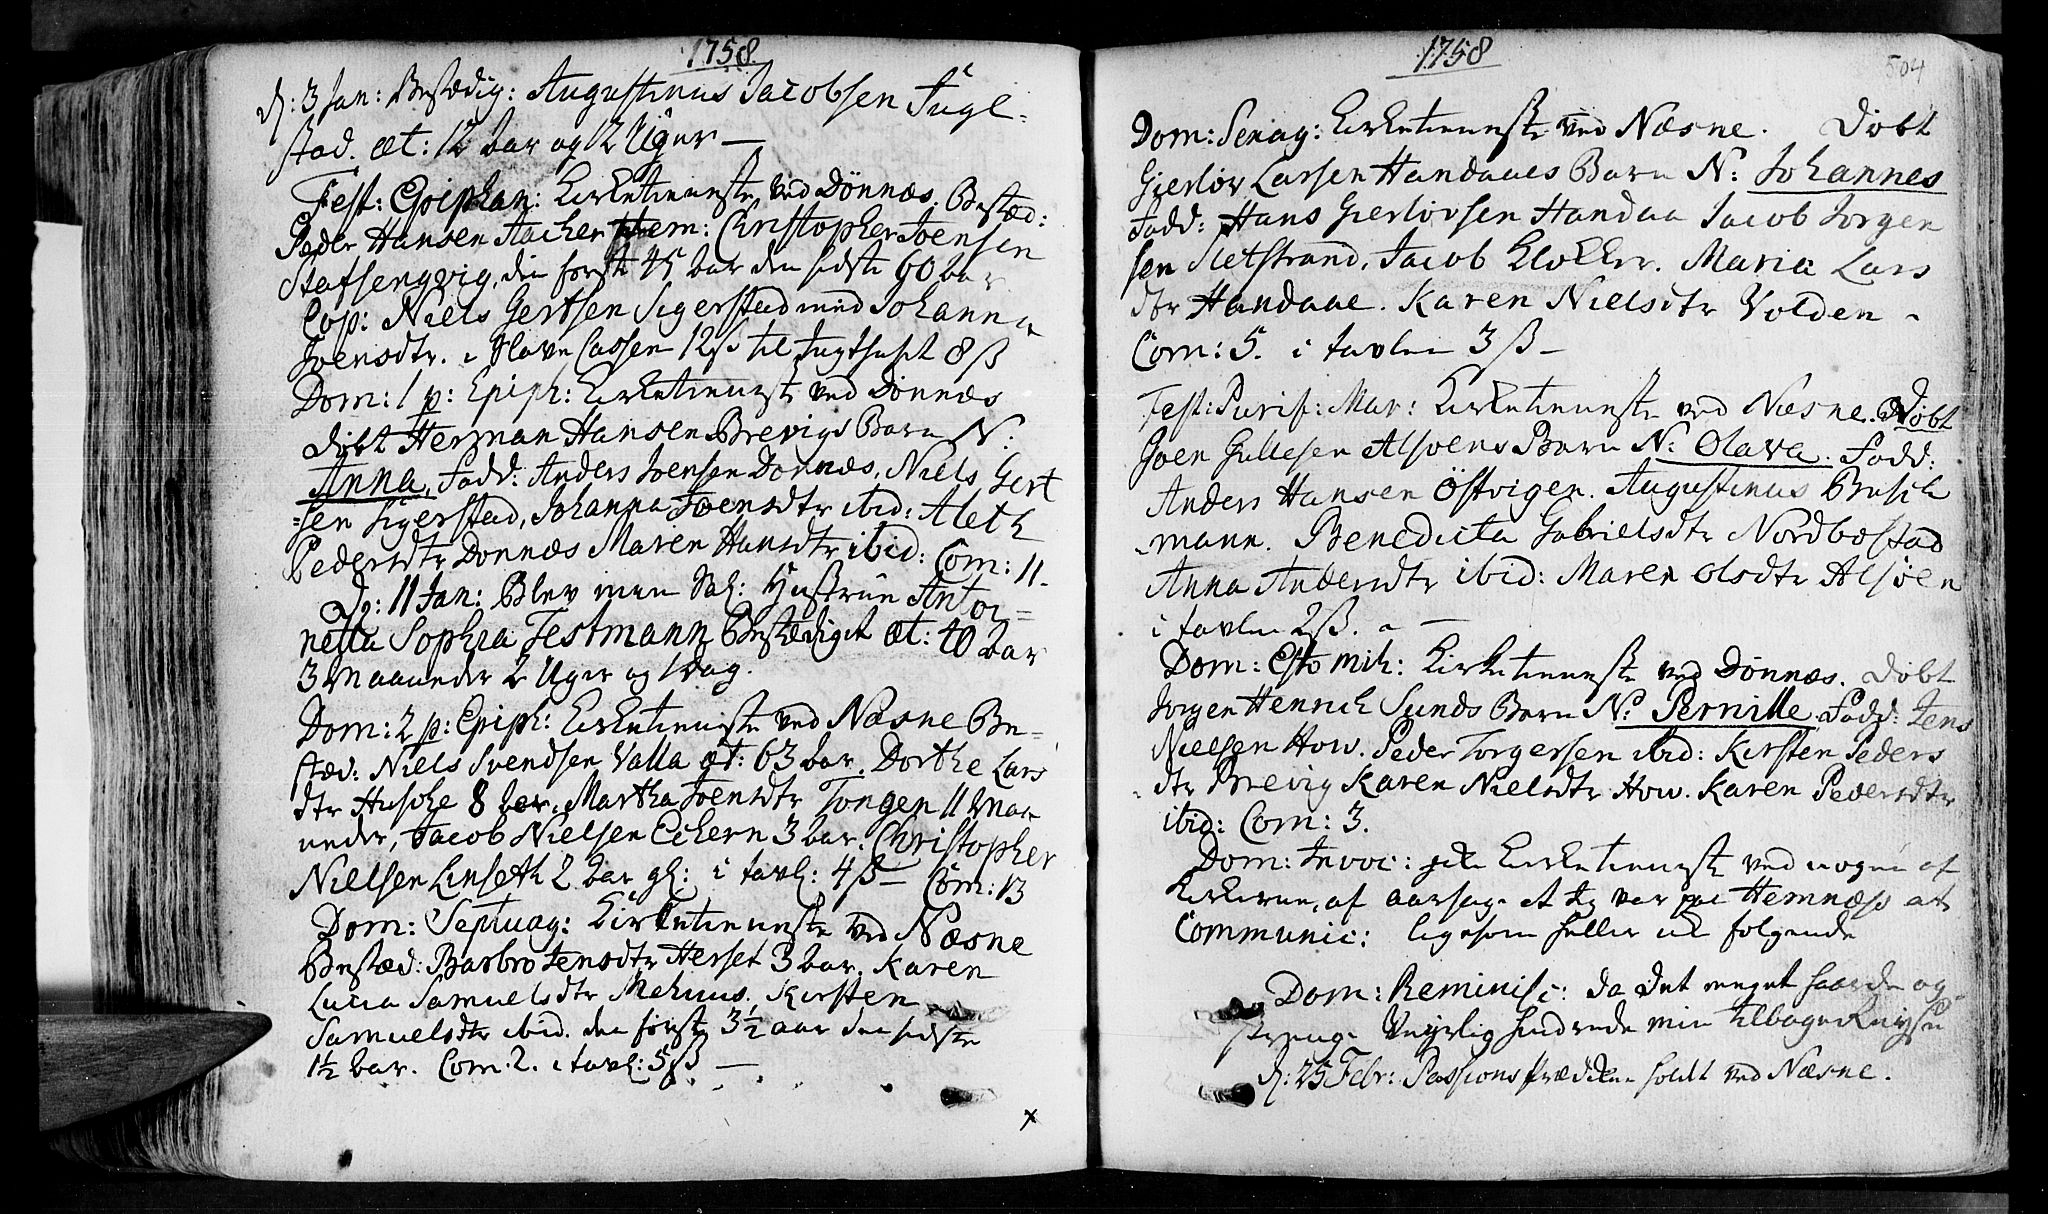 1758
d: 3 Jan: Bestædig: Augustinus Jacobsen Tugl-
stad. æt: 12 aar og 12 Uger —
Fest: Epiphan: Kirketienneste ved Dönnæs. Bestæd:
Peder Hansen Aaker Hem: Christopher Joensen
Stafsengvig, din første 45 aar den sidste 60 aar
Cop: Niels Gertsen Sigerstad med Johanna
Joensdtr. i Slave Cassen 12 ß til Tugthuset 8 ß
Dom: 1 p: Epiph: Kirketienneste ved Dönnæs
döbt Herman Hansen Brevigs Barn N:
Anna, Fadd: Anders Joensen Dönnæs, Niels Gert
=sen Sigerstad, Johanna Joensdtr ibid: Aleth
Pedersdtr Dönnæs Maren Hansdtr ibid: Com: 11.
D: 11 Jan: Blev min Sal: Hustrue Antoi=
netta Sophia Testmann Bestædiget æt: 40 aar
3 Maaneder 2 Uger og 1 dag.
Dom: 2 p: Epiph: Kirketienneste ved Næsne Be=
stæd: Niels Svendsen Valla æt: 63 aar. Dorthe Lars
dtr Husche 8 aar. Martha Joensdtr Tongen 11 Maa
neder, Jacob Nielsen Eckern 3 aar. Christopher
Nielsen Linseth 2 aar gl: i tavl: 4 ß — Com: 13
Dom: Septuag: Kirketienneste ved Næsne
Bestæd: Barbro Jensdtr Herset 3 aar. Karen
Lucia Samuelsdtr Mehuus. Kirsten
Samuelsdtr ibid. den første 3½ aar den sidste
1½ aar. Com: 2. i tavl: 5 ß —
1758
504
Dom: Sexag: Kirketienneste ved Næsne. Döbt
Gierlöv Larsen Handaaes Barn N: Johannes
Fadd: Hans Gierlövsen Handaa Jacob Jörgen
sen Sletstrand, Jacob Klokker. Maria Lars
dtr Handaae. Karen Nielsdtr Volden -
Com: 5. i tavlen 3 ß —
Fest: Purif: Mar: Kirketienneste ved Næsne. Döbt
Joen Gullesen Alsöens Barn N: Olava. Fadd:
Anders Hansen Östvigen. Augustinus Busch
mann. Benedicta Gabrielsdtr Nordbostad
Anna Andersdtr ibid: Maren Olsdtr Alsöen
i tavlen 2 ß. —
Dom: Esto mih: Kirketienneste ved Dönnæs. Döbt
Jörgen Henrich Sunds Barn N: Pernille. Fadd: Jens
Nielsen How. Peder Torgersen ibid: Kirsten Peders
dtr Brevig Karen Nielsdtr How. Karen Pedersdtr
ibid: Com: 3.
Dom: Invoc: Kirketienneste ved nogen af
Kirkerne, af aarsage at Jeg var paa Hemnæss at
Communic: ligesom heller ei folgende
Dom: Reminisc: da det meget haarde og
strenge Veyrlig hindrede min Tilbage Reyse
d: 25 Febr: Passions Prædiken holdt ved Næsne.